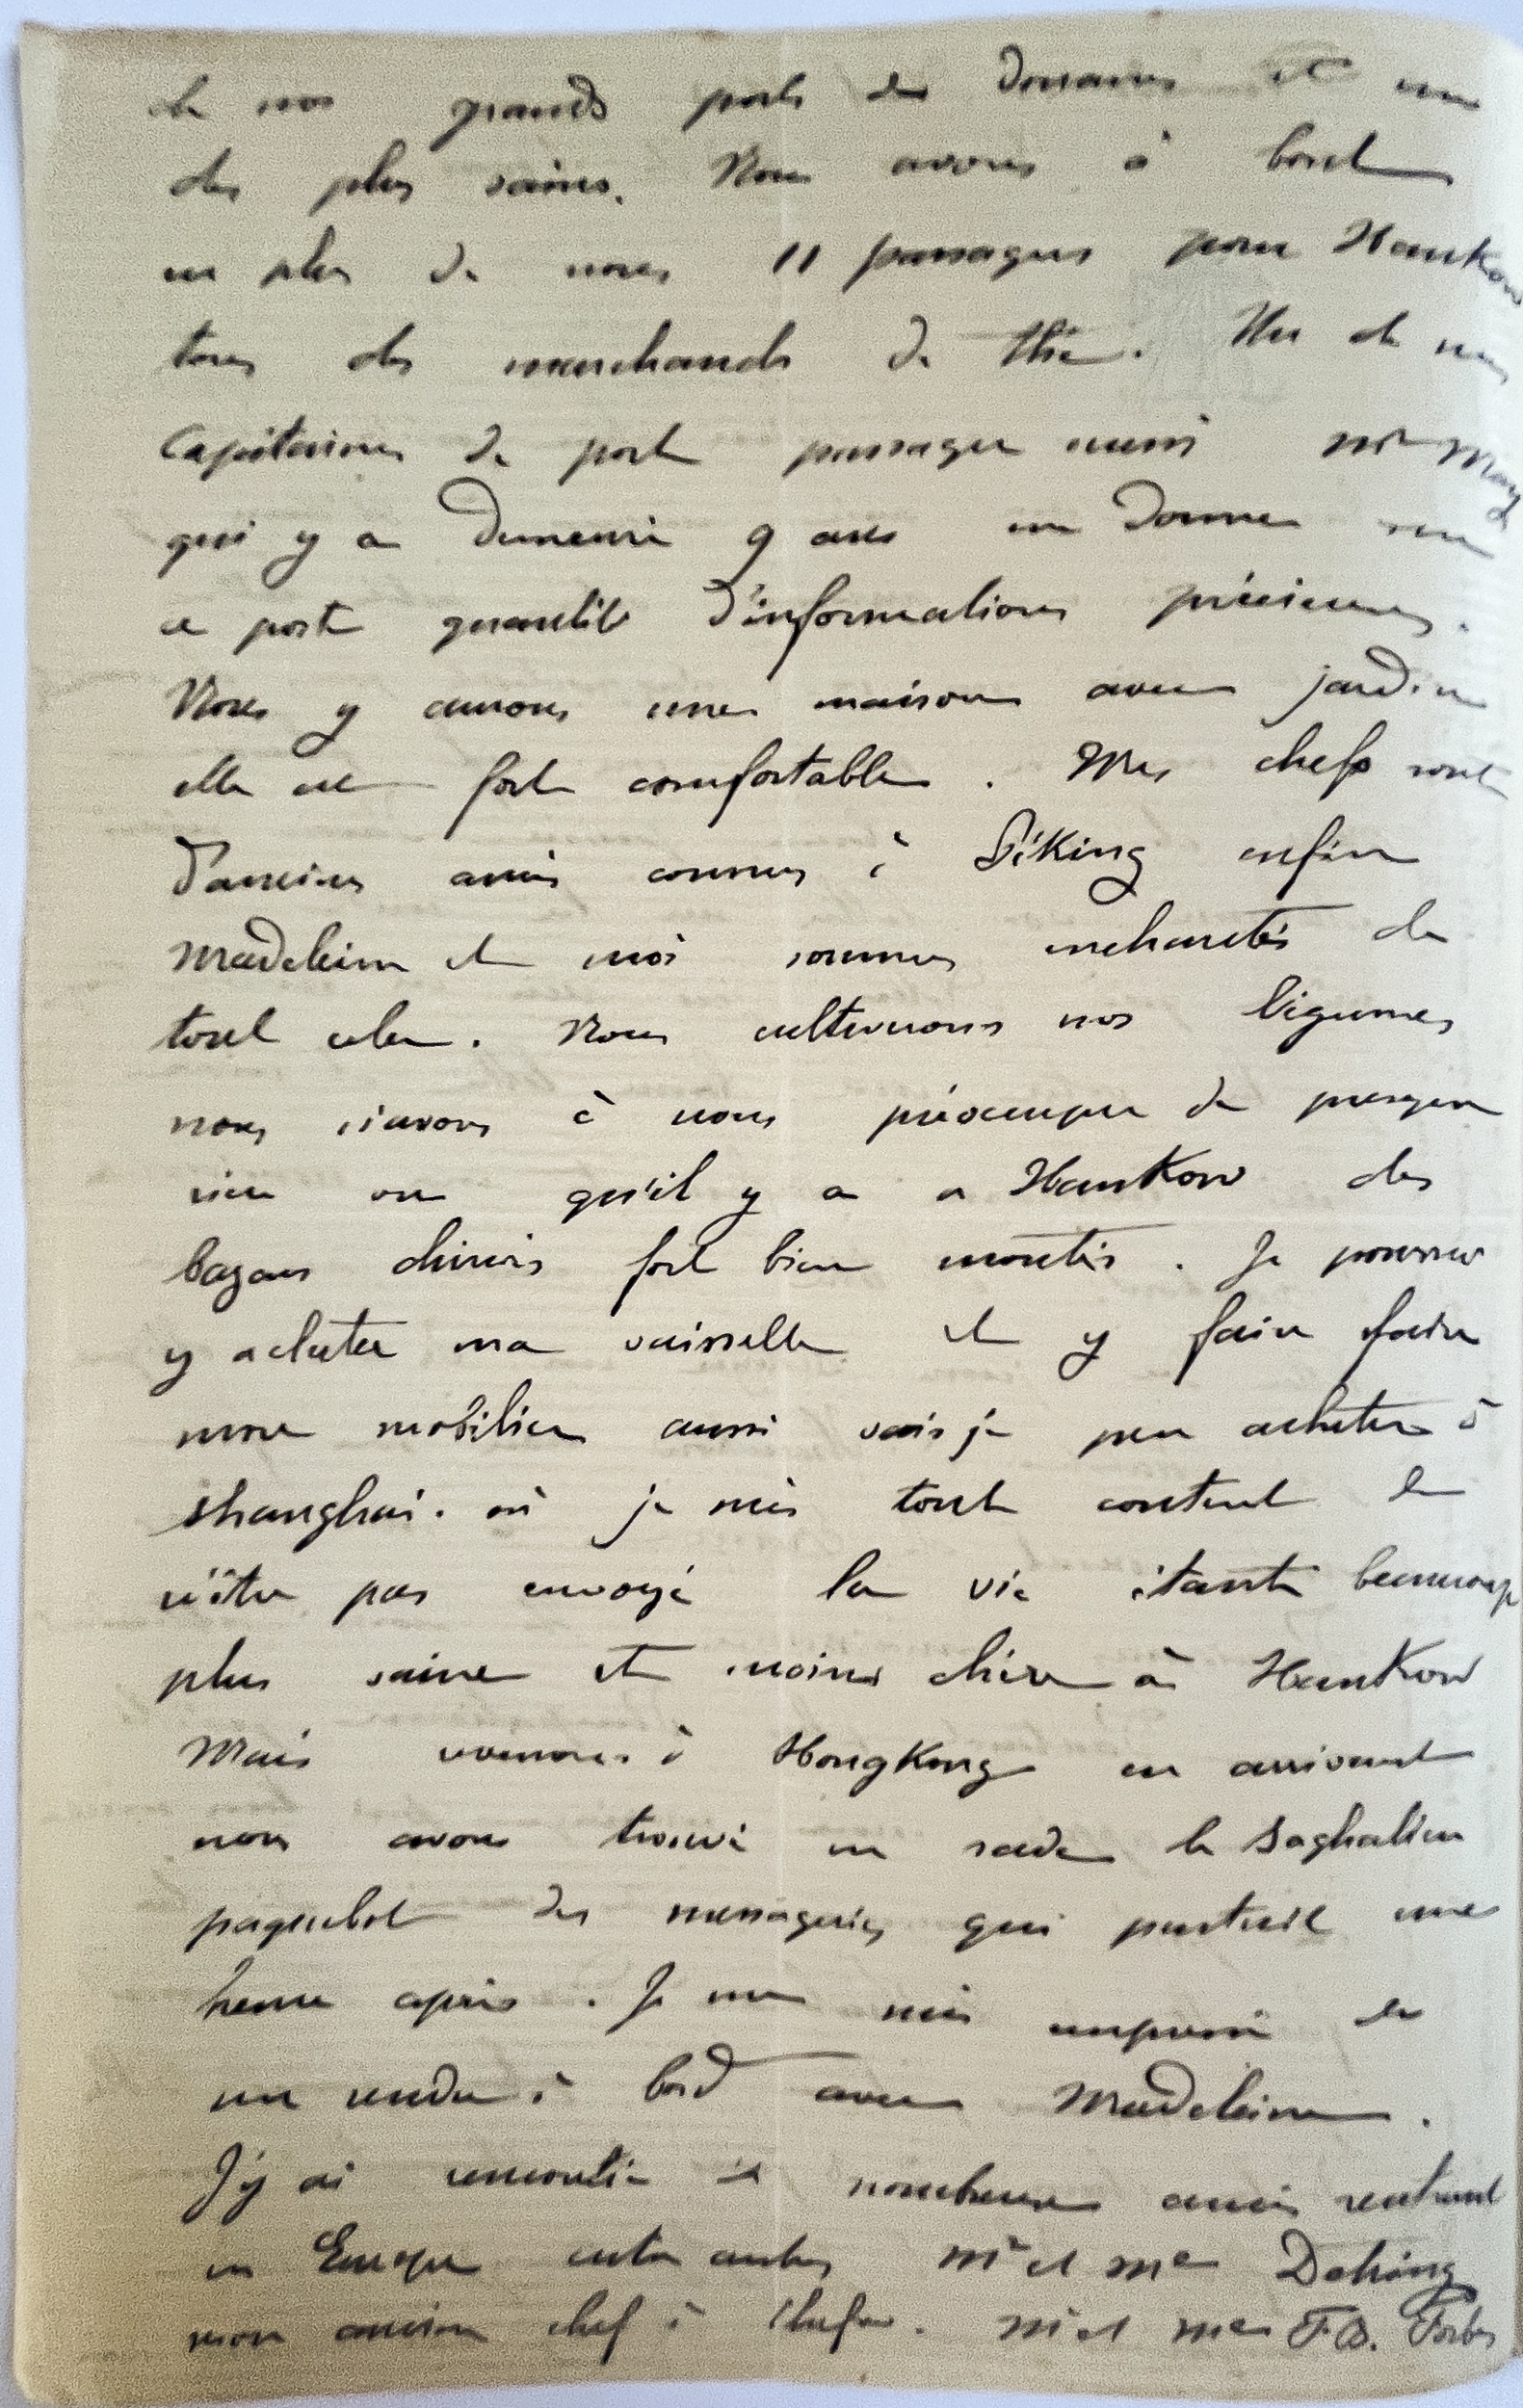 de nos grands ports des Douanes et un
des plus sains. Nous avons à bord
en plus de nous 11 passagers pour Hankow
tous des marchands de thé. Un de nos
Capitaines de port passager aussi Mr May
qui y a demeuré 9 ans me donne sur
ce port quantité d'informations précieuses.
Nous y aurons une maison avec jardin
elle est fort comfortable. Mes chefs sont
d'anciens amis connus à Péking enfin
Madeleine et moi sommes enchantés de
tout cela. Nous cultiverons nos légumes
nous n'avons à nous préoccuper de presque
rien vu qu'il y a a Hankow des
bazars chinois fort bien montés. Je pourrai
y acheter ma vaisselle et y faire faire
mon mobilier aussi vais je peu acheter à
Shanghai. où je suis tout content de
n'être pas envoyé la vie étant beaucoup
plus saine et moins chère à Hankow
Mais revenons à HongKong en arrivant
nous avons trouvé en rade le Saghalien
paquebot des messageries qui partait une
heure après. Je me suis empressé de
me rendre à bord avec Madeleine.
J'y ai rencontré de nombreux amis rentrant
en Europe entre autres Mr et Me Detring
mon ancien chef à Chefoo. Mr et Me F.B. Forbes